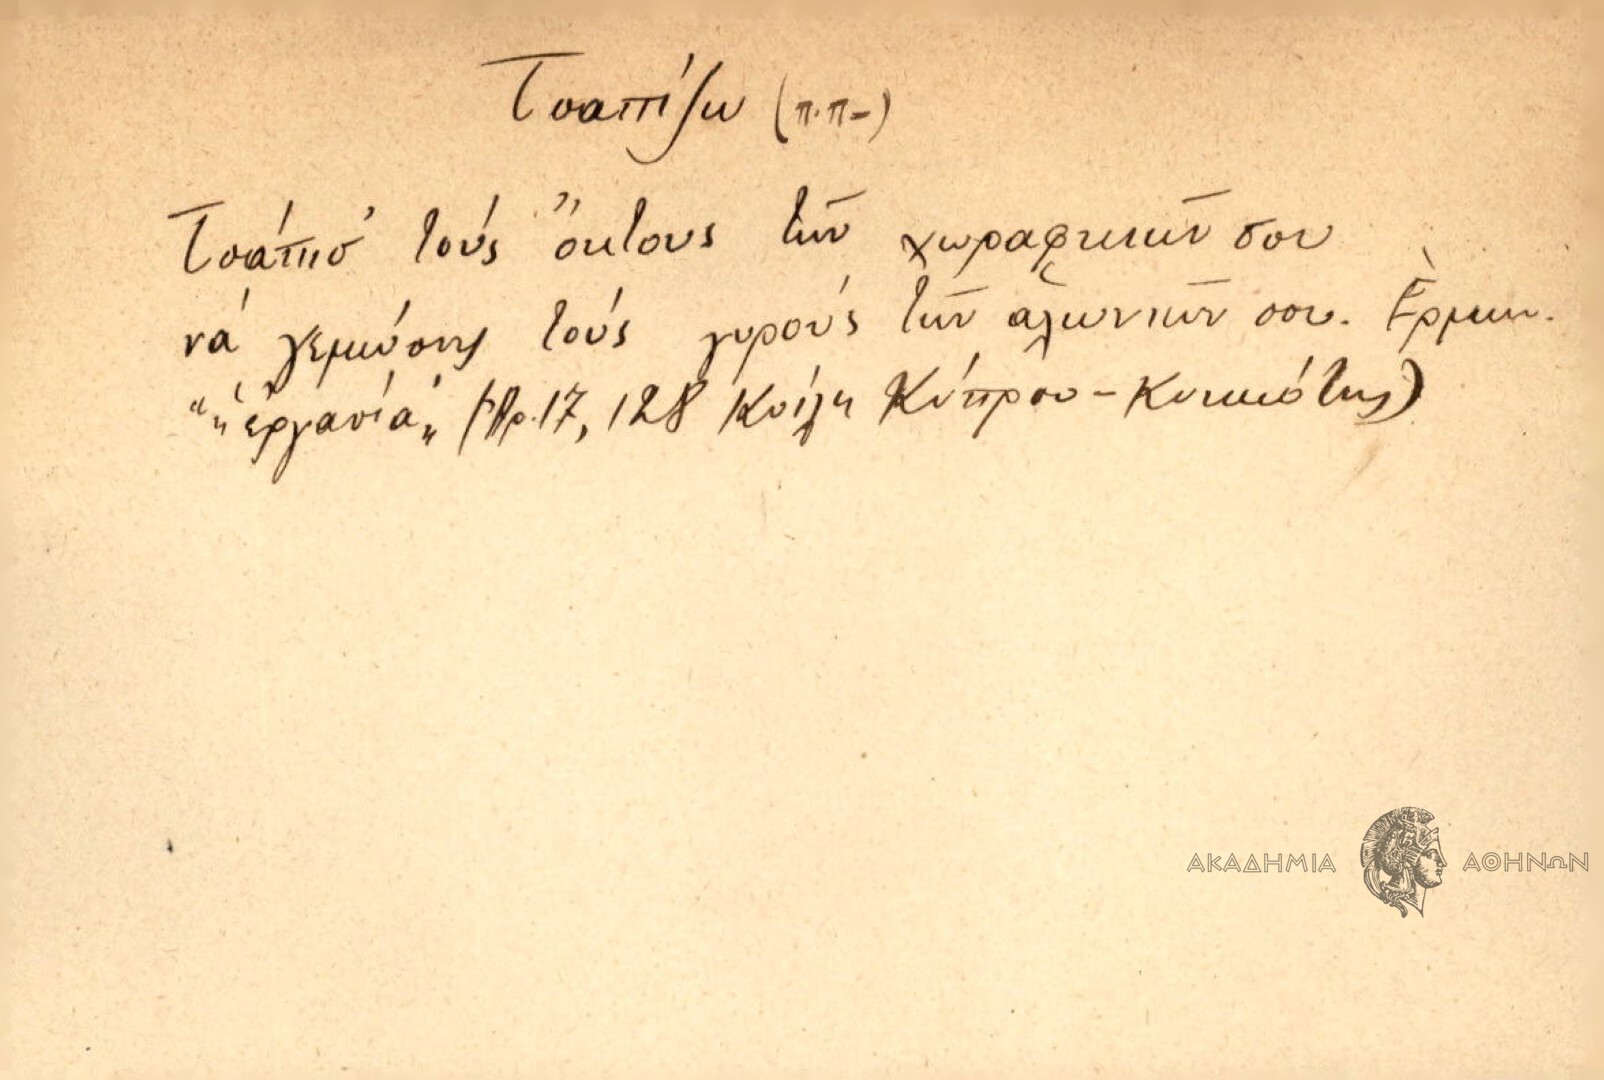 Τσαπίζω (π.π-)
Τσάπισ' τούς ὄχτους τῶν χωραφκιῶν σου
νά γεμώσῃς τούς γυρούς τῶν ἁλωνιῶν σου. Ἑρμην.
"ἡ ἐργασία" (Ἀρ. 17, 128 Κοίλη Κύπρου - Κυκκώτης)
ΑΚΑΔΗΜΙΑ ΑΘΗΝΩΝ